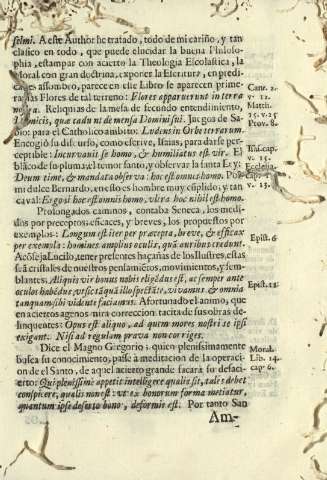 selmi. A este Author he tratado, todo de mi cariño, y tan
clasico en todo, que puede elucidar la buena Philoso-
phia, estampar con acierto la Theologia Escolastica, la
Moral con gran doctrina, exponer la Escritura, en predi-
caciones assombro, parece en este Libro se aparecen prime-
ras las Flores de tal terreno: Flores apparuerunt in terra
nostra. Reliquias de la mesa de fecundo entendimiento,
de micis, quæ cadunt de mensa Domini sui. Juegos de Sa-
bio, para el Catholico ambito: Ludens in Orbe terrarum.
Encogiò su discurso, como escrive, Isaias, para darse per-
ceptible: Incurvavit se homo, & humiliatus est vir. El
blãco de su pluma, el temor santo, y observar la santa Ley:
Deum time, & mandata observa: hoc est omnis homo. Por
mi dulce Bernardo, en esto es hombre muy cũplido, y tan
caval: Ergo si hoc est omnis homo, vbero hoc nihil est homo.
Prolongados caminos, contaba Seneca, los medi-
dos por preceptos: eficaces, y breves, los propuestos por
exemplos: Longum est iter per præcepta, breve, & efficax
per exempla: homines amplius oculis, quã auribus credunt.
Acõseja Lucilo, tener presentes hazañas de los Ilustres, estas
seã cristales de nuestros pensamiẽtos, movimientos, y sem-
blantes. Aliquis vir bonus nobis eligẽdus est, ac semper ante
oculos habẽdus, vt sic tãquã illo spectãte, vivamus & omnia
tanquam sibi vidente faciamus. Afortunado el animo, que
en aciertos agenos mira correccion: tacita de sus obras de-
linquentes: Opus est aliquo, ad quem mores nostri se ipsi
exigant. Nisi ad regulam prava non corriges.
Dice el Magno Gregorio: quien plenissimamente
busca su conocimiento, passe à meditacion de la operacion
de el Santo, de aquel acierto grande sacarà su desa-
cierto: Qui plenissimè appetit intelligere qualis sit, tales debet
conspicere, qualis non est: vt ex bonorum forma metiatur,
quantum ipse deserto bono, deformis est. Por tanto San
Am-
Cant. 2.
v. 12.
Match.
15. v. 25
Prov. 8.
Isai. cap.
v.
Ecclesia.
cap.
v. 13.
Epist. 6.
Epist. 11.
Moral.
Lib. 24.
cap. 6.